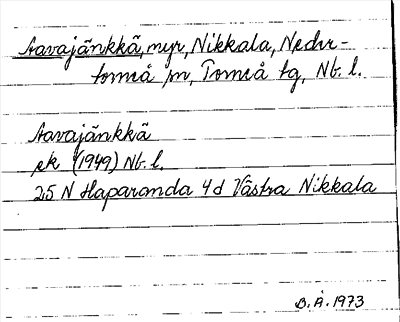 Aavajänkkä, myr, Nikkala, Neder-
torneå sn, Torneå tg, Nb. l.
Aavajänkkä
ek (1949) Nb. l.
25 N Haparanda 4d Västra Nikkala
B. Å. 1973